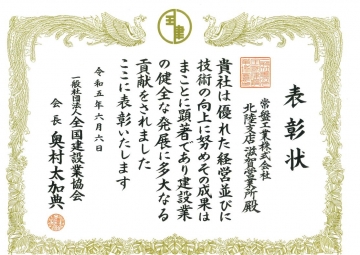 表彰状
常盤工業株式会社
北陸支店滋賀営業所殿
貴社は優れた経営並びに
技術の向上に努めその成果は
まことに顕著であり建設業
の健全な発展に多大なる
貢献をされました
ここに表彰いたします
令和五年六月六日
一般社団法人全国建設業協会
会長 奥村太加典